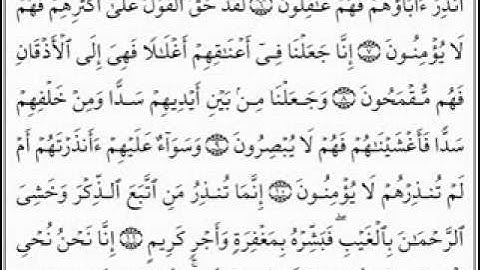 أُنذِرَ ءَابَآؤُهُمْ فَهُمْ غَـٰفِلُونَ ۝٦ لَقَدْ حَقَّ ٱلْقَوْلُ عَلَىٰٓ أَكْثَرِهِمْ فَهُمْ
لَا يُؤْمِنُونَ ۝٧ إِنَّا جَعَلْنَا فِىٓ أَعْنَـٰقِهِمْ أَغْلَـٰلًا فَهِىَ إِلَى ٱلْأَذْقَانِ
فَهُم مُّقْمَحُونَ ۝٨ وَجَعَلْنَا مِنۢ بَيْنِ أَيْدِيهِمْ سَدًّا وَمِنْ خَلْفِهِمْ
سَدًّا فَأَغْشَيْنَـٰهُمْ فَهُمْ لَا يُبْصِرُونَ ۝٩ وَسَوَآءٌ عَلَيْهِمْ ءَأَنذَرْتَهُمْ أَمْ
لَمْ تُنذِرْهُمْ لَا يُؤْمِنُونَ ۝١٠ إِنَّمَا تُنذِرُ مَنِ ٱتَّبَعَ ٱلذِّكْرَ وَخَشِىَ
ٱلرَّحْمَـٰنَ بِٱلْغَيْبِ ۖ فَبَشِّرْهُ بِمَغْفِرَةٍ وَأَجْرٍ كَرِيمٍ ۝١١ إِنَّا نَحْنُ نُحْىِ